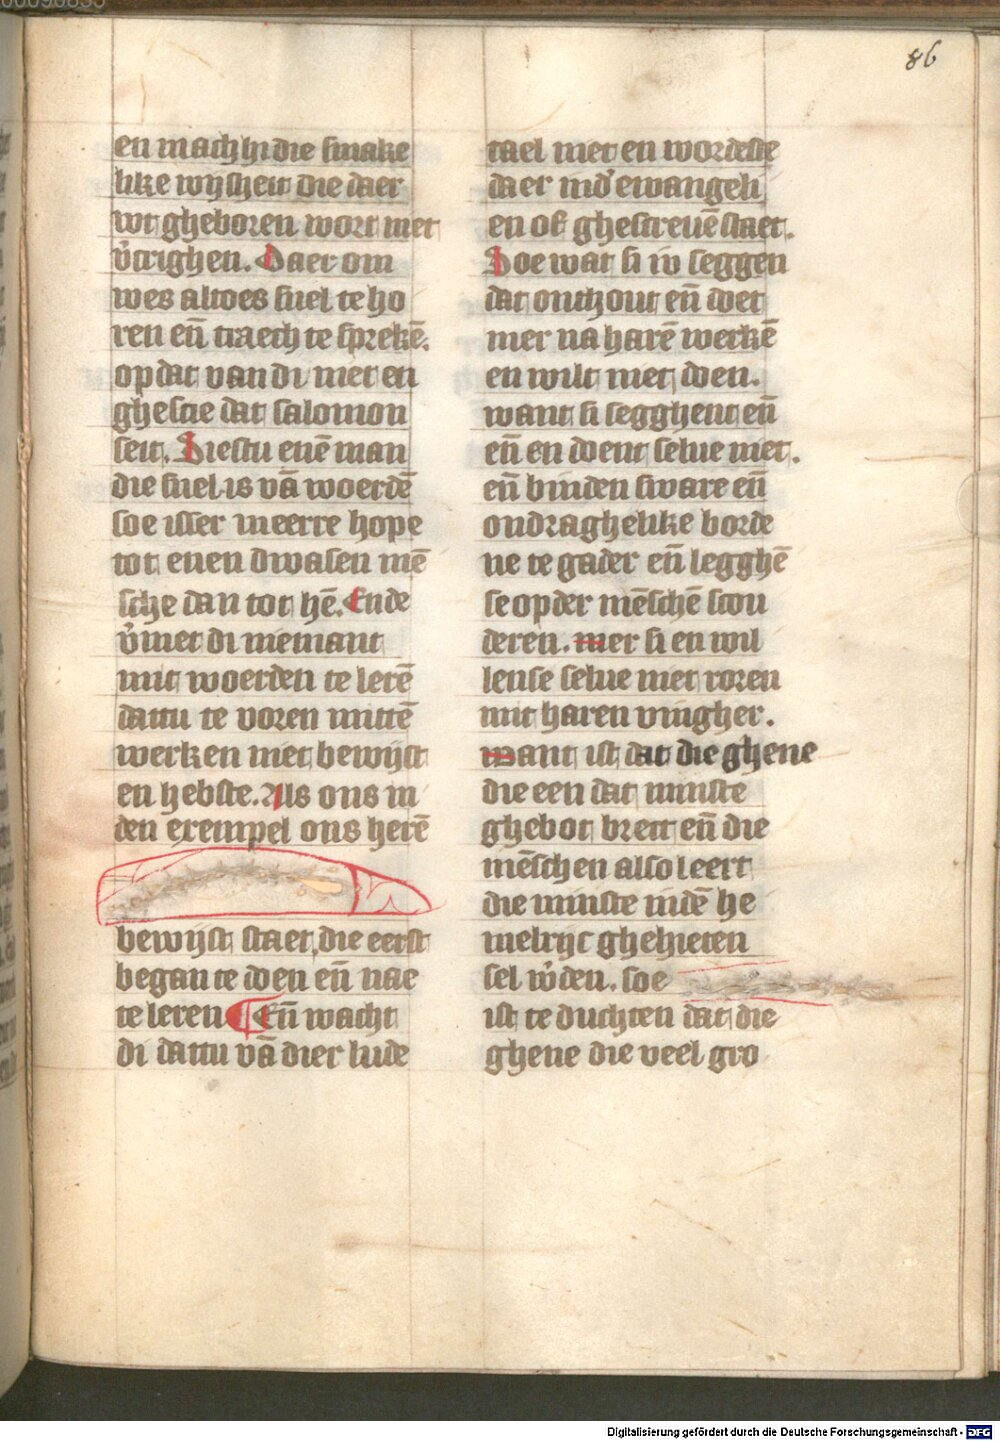 86
en mach hi die smake
like wijsheit die daer
wt gheboren wort niet
v̉crighen. Daer om
wes altoes snel te ho
ren en̄ traech te sprekē.
op dat van di niet en
ghescie dat salomon
seit. Siestu enē man
die snel is vā woerdē
soe isser meerre hope
tot enen dwasen mē
sche dan tot hē. Ende
v̉met di niemant
mit woerden te lerē
dattu te voren mittē
werken niet bewijst
en hebste. Als ons in
den exempel ons herē
bewijst staet, die eerst
began te doen en̄ nae
te leren ¶ En̄ wacht
di dattu vā dier lude
tael niet en wordeste
daer ind̉ ewangeli
en of ghescreuē staet.
Soe wat si iv seggen
dat onthout en̄ doet
mer na harē werkē
en wilt niet doen.
want si segghent en̄
en̄ en doent selue niet.
en̄ binden sware en̄
ondraghelike borde
ne te gader en̄ legghē
se op der mēschē scou
deren. mer si en wil
lense selue niet roren
mit haren vingher.
want ist dat die ghene
die een dat minste
ghebot brect en̄ die
mēschen also leert
die minste indē he
melrijc ghehieten
sel w̉den. soe
ist te duchten dat die
ghene die veel gro
Digitalisierung gefördert durch die Deutsche Forschungsgemeinschaft - DFG